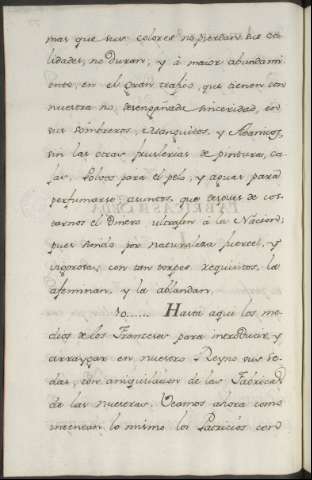 mas que sus colores no pierdan sus ca
lidades, no duran, y á maior abundami
ento, en el gran trafico, que tienen con
nuestra no desengañada sinceridad, en
sus sombreros, Blanquetes, y Abanicos,
sin las otras fruslerias de pinturas, ca
jas, Polvos para el pelo, y aguas para
perfumarse asuntos, que despues de cos
tarnos el Dinero ultrajan á la Nacion;
pues siendo por naturaleza fuerte, y
vigorosa, con tan torpes requisitos, la
afeminan, y la ablandan.
10...... Hasta aqui los me
dios de los Franceses para introducir, y
arraygar en nuestro Reyno sus Se
das, con aniquilacion de las Fabricas
de las nuestras. Veamos ahora como
intentan lo mismo los Patricios con